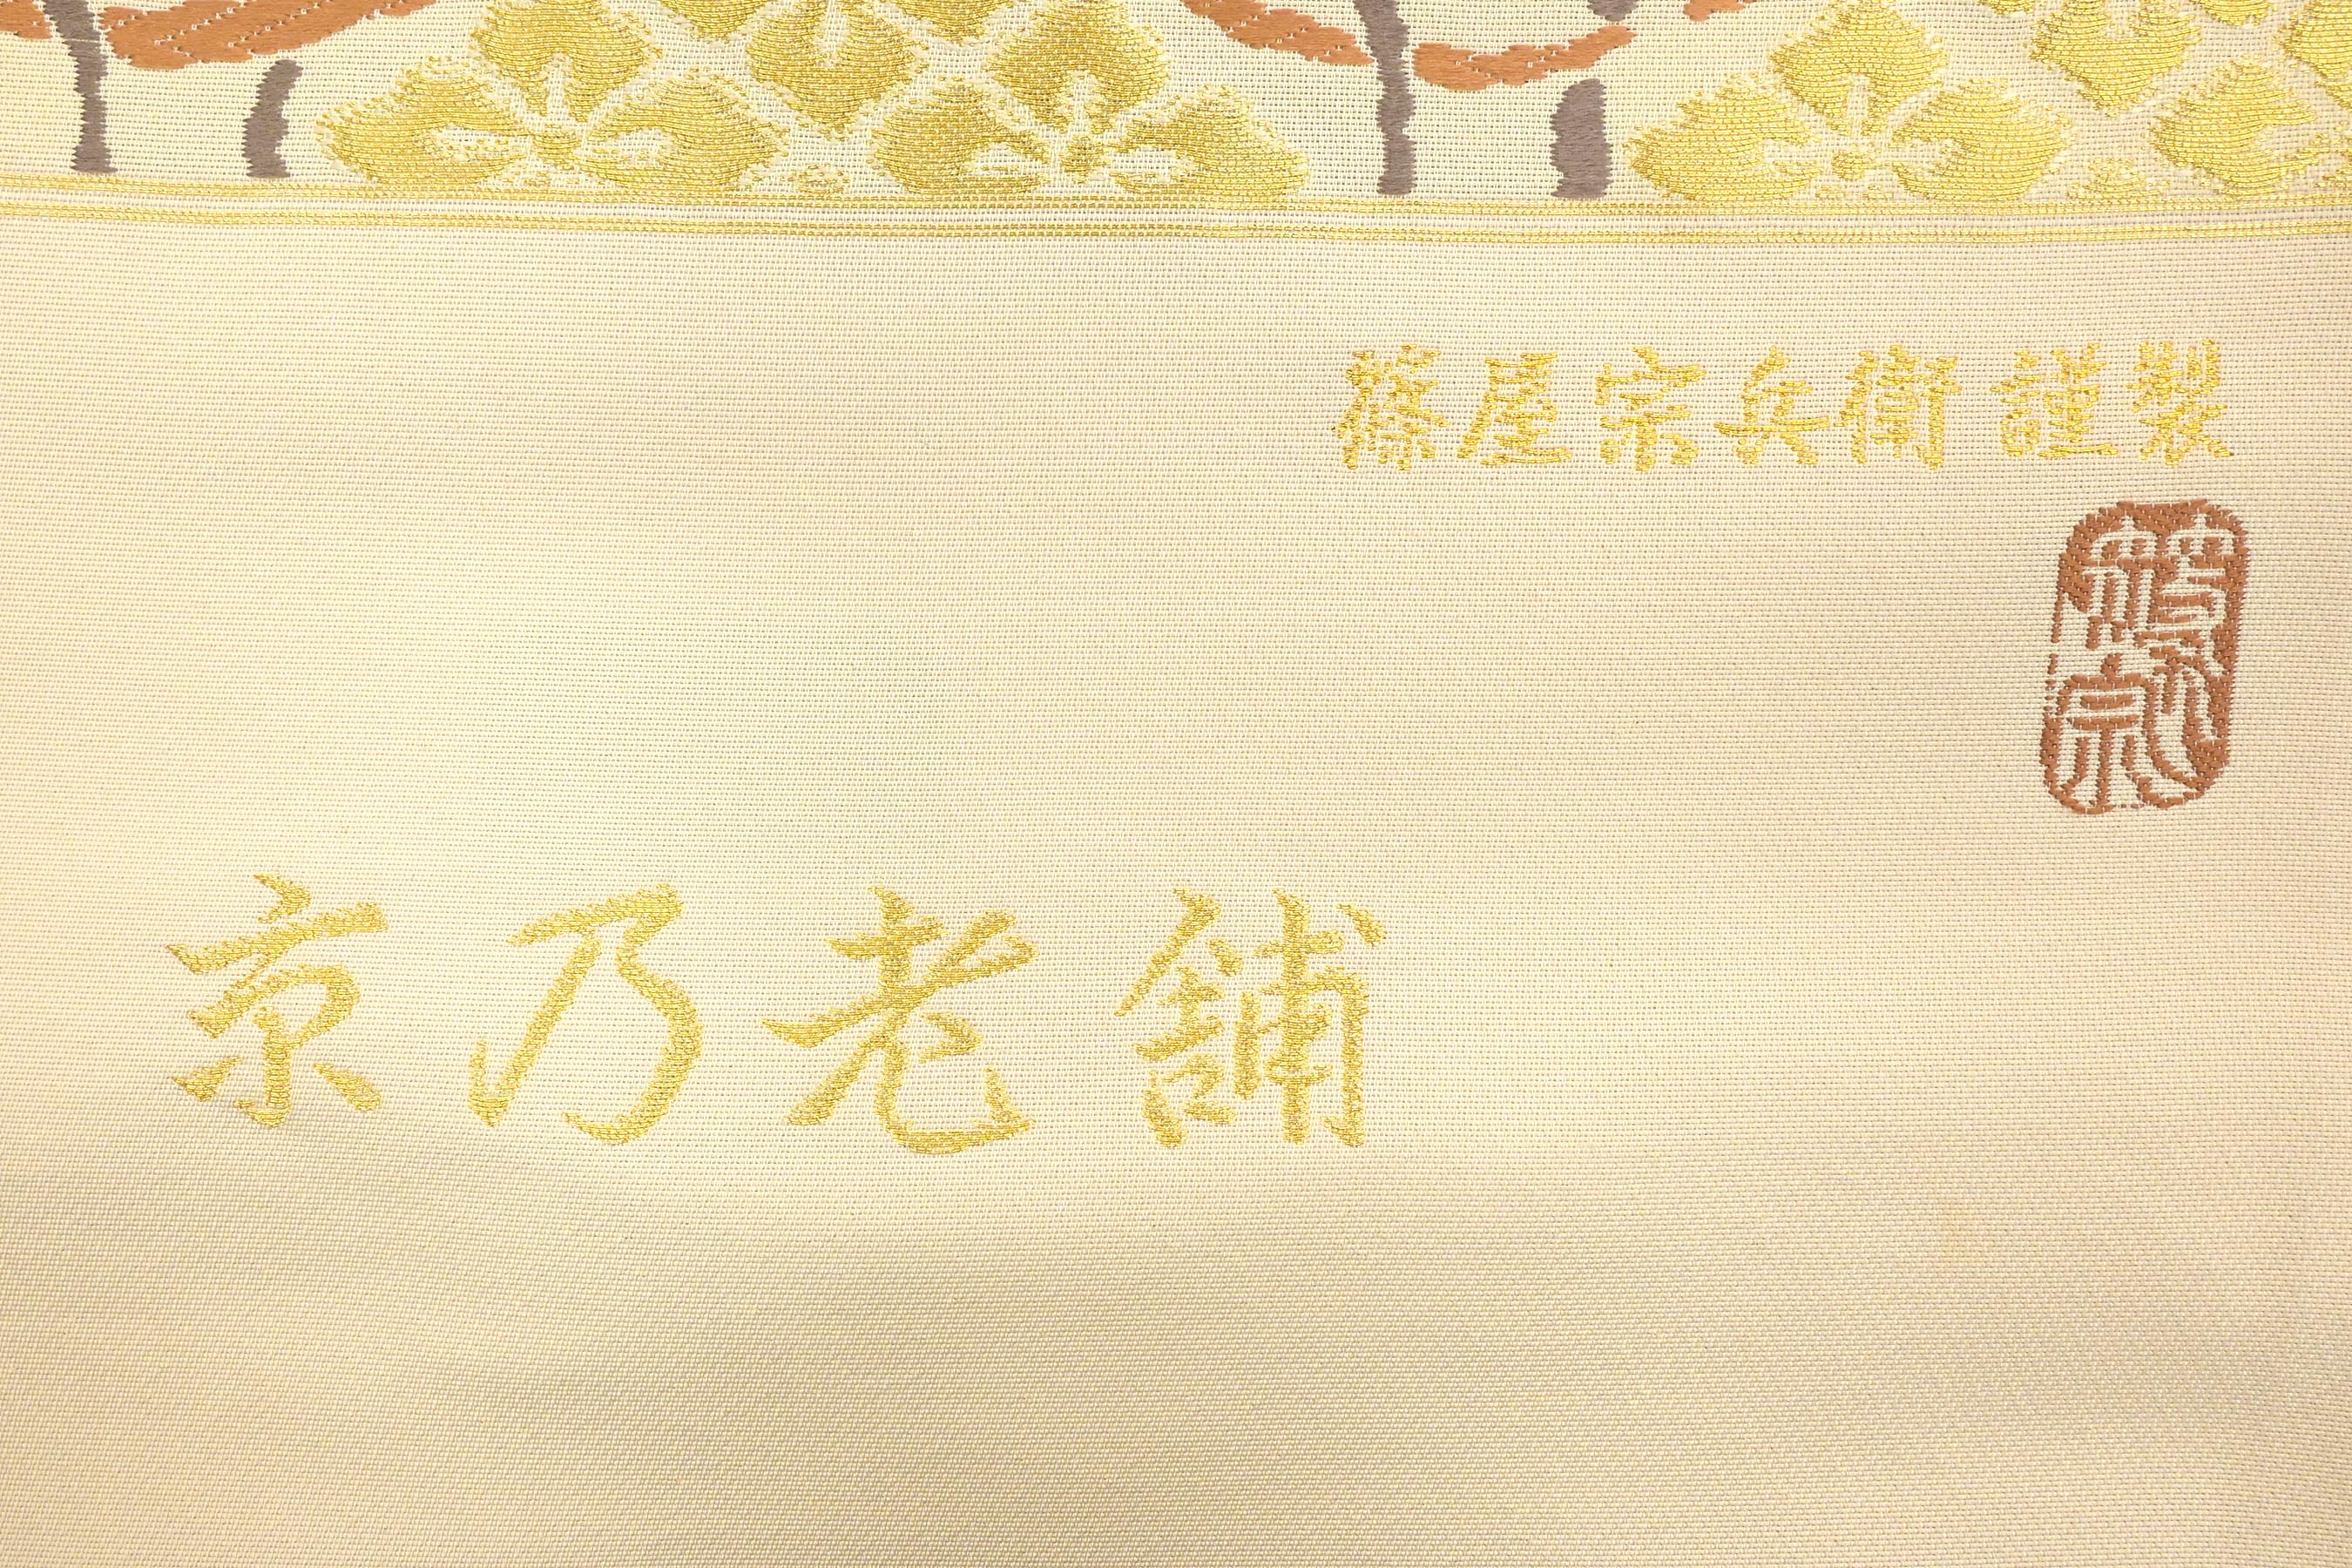 篠屋宗兵衛 謹製
京乃老舗